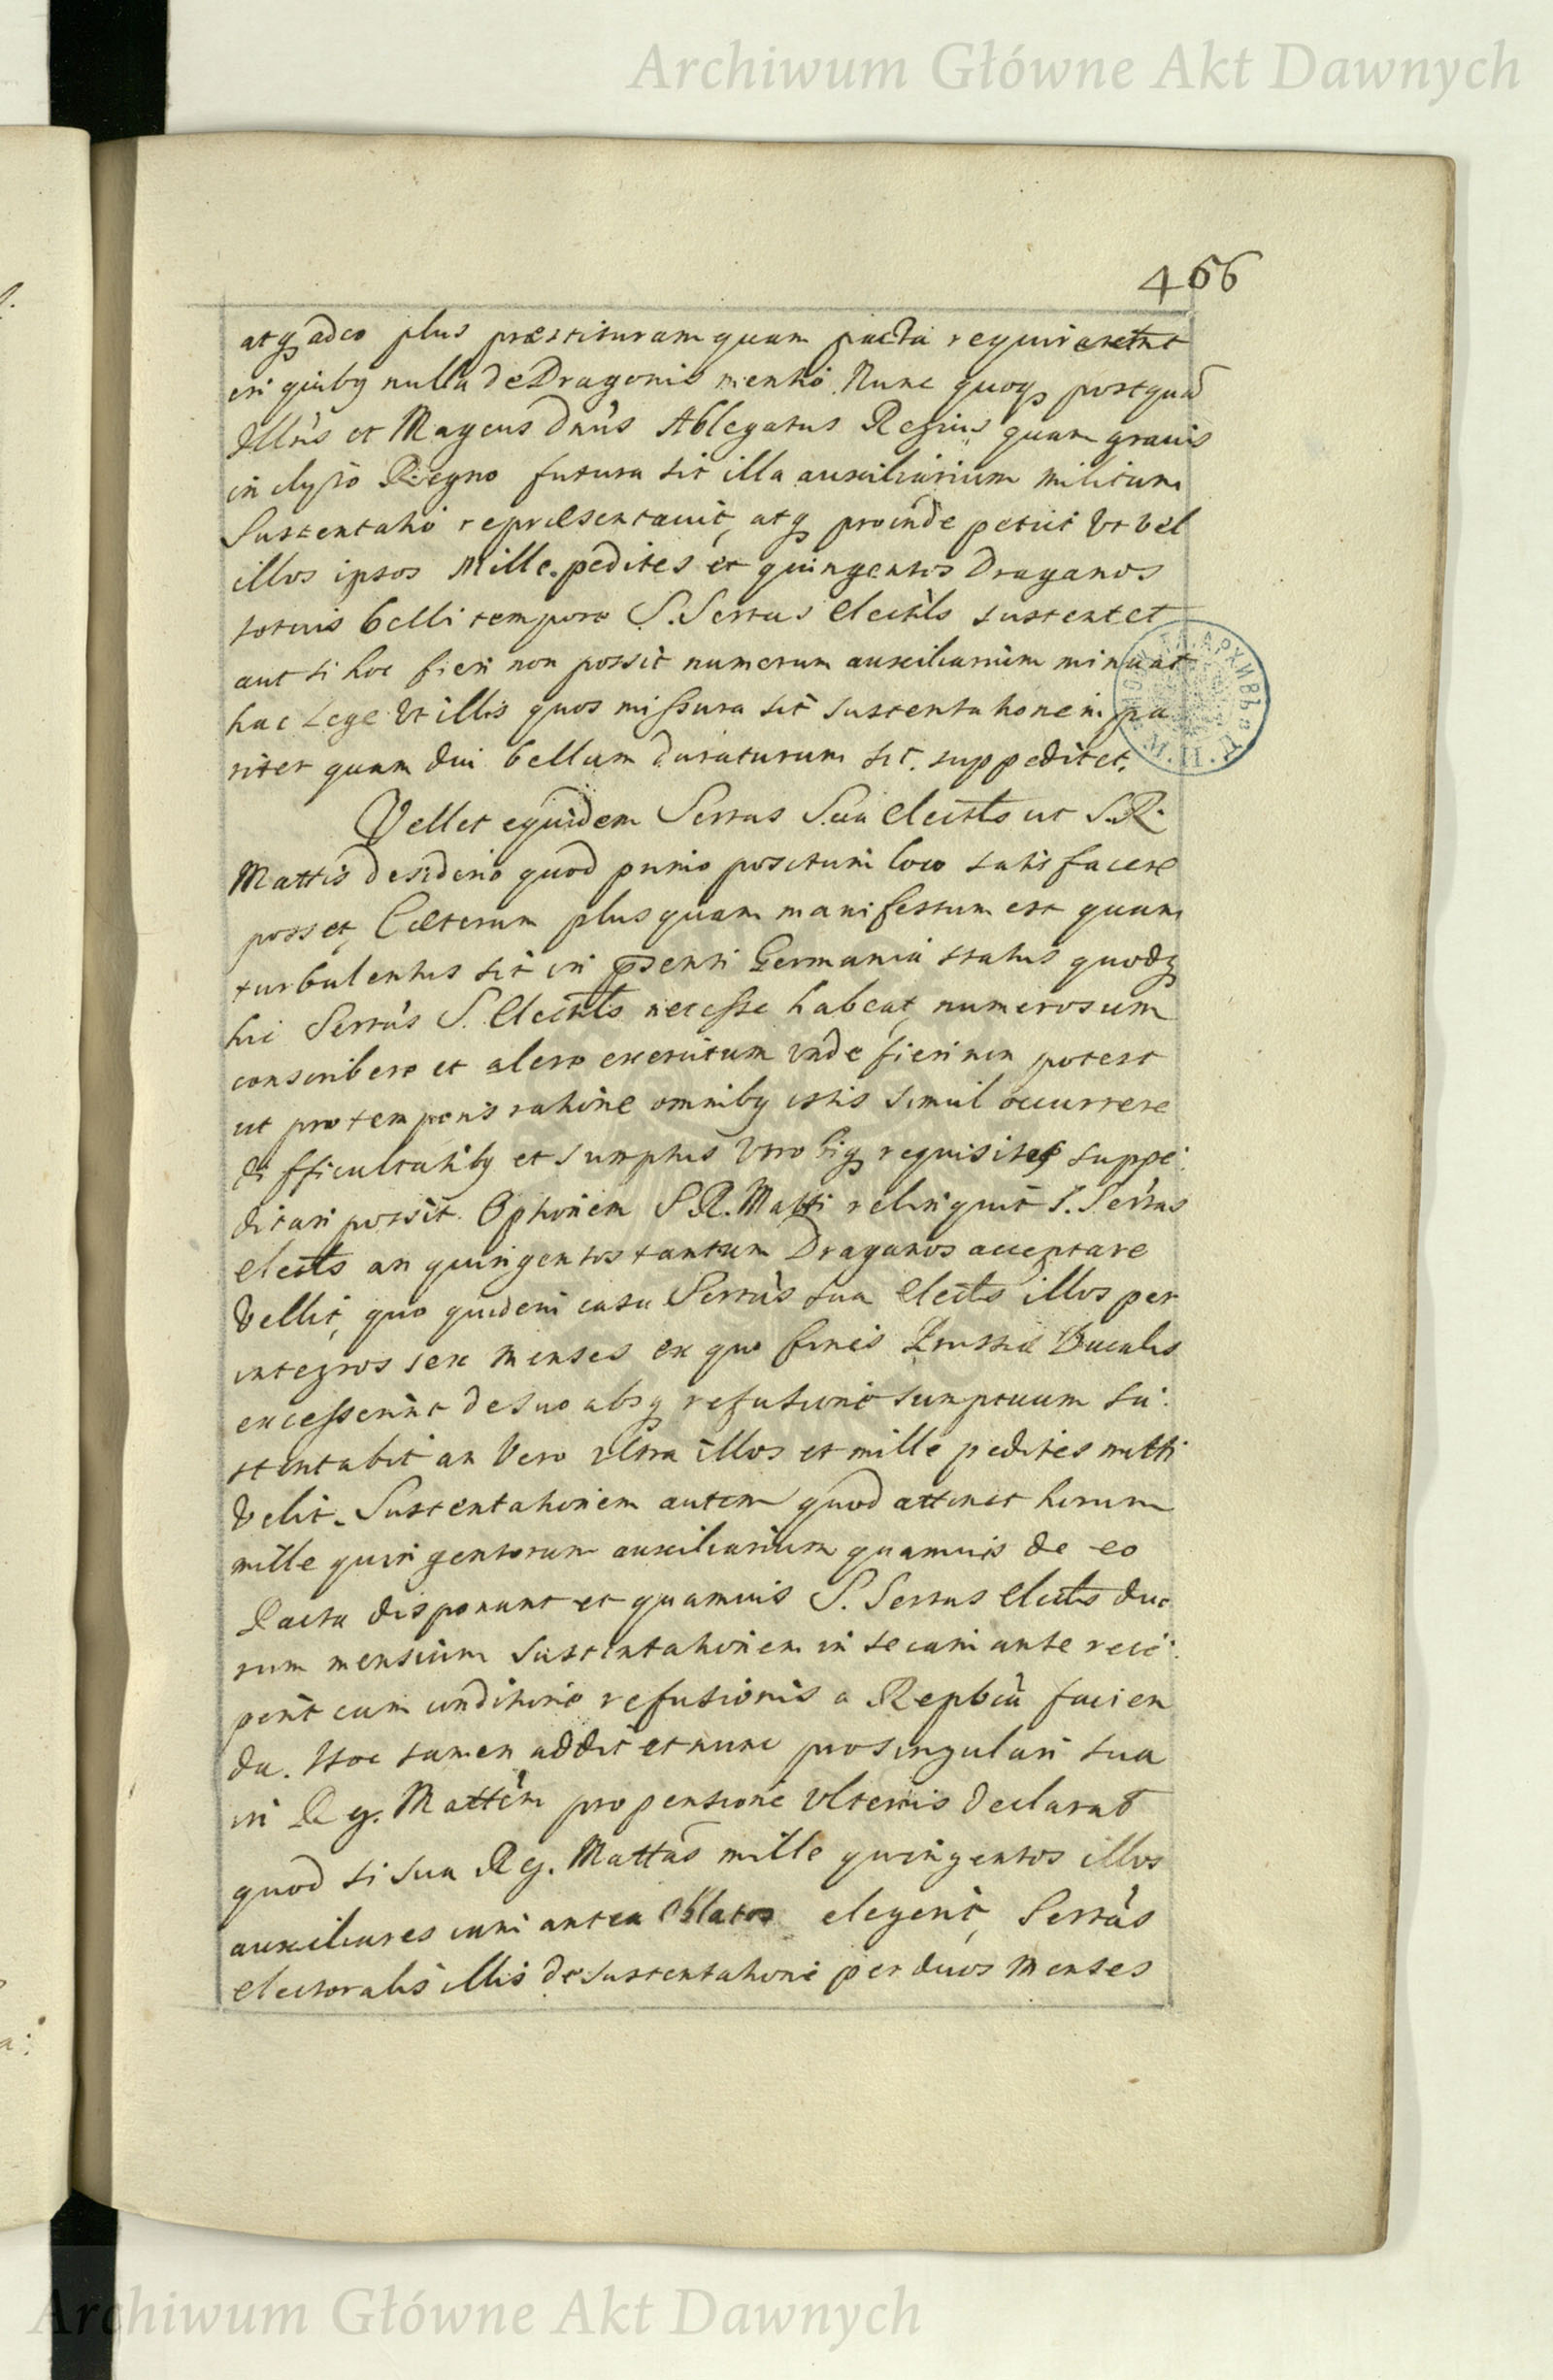 Archiwum Główne Akt Dawnych
466
atq adeo plus præstituram quam pacta requirerent
in quibq nulla de Dragonis mentio. Nunc quoq postquã
Illris et Magcus Dnus Ablegatus Regius quam gravis
inclyto Regno futura sit illa auxiliarium militum
Sustentatio repræsentavit, atq proinde petiit Vt vel
illos ipsos Mille pedites et quingentos Draganos
totius belli tempore S. Serras Electls sustentet
aut si hoc fieri non possit numerum auxiliarium minuat
hac Lege Vt illis quos missura sit sustentationem pa
riter quam diu bellum duraturum sit. suppeditet.
Vellet equidem Serras Sua Elects ut S. R.
Mattis desiderio quod primo positum loco satisfacere
posset, Cæterum plusquam manifestum est quam
turbulentus sit in psenti Germania status quodq
hic Serras S. Elects necesse habeat, numerosum
conscribere et alere exercitum unde fieri non potest
ut pro temporis ratione omnibq istis simul occurrere
difficultatibq et sumptus Vtrobiq requisitos suppe:
ditari possit. Optionem S. R. Matti relinquit S. Serras
elects an quingentos tantum Draganos acceptare
Vellit, quo quidem casu Serras sua Elects illos per
integros sex menses ex quo fines Prussiæ Ducalis
excesserint de suo absq refusione sumptuum su:
stentabit an Vero ultra illos et mille pedites mitti
Velit. Sustentationem autem quod attinet horum
mille quingentorum auxiliarium quamvis de eo
Pacta disponant et quamvis S. Serras Elects duo
rum mensium Sustentationem in se iam ante reci:
perit cum conditione refusionis a Repbca facien
da. Hoc tamen addit et nunc pro singulari sua
in Rg. Mattem propensione Ulterius declarat
quod si sua Rg. Mattas mille quingentos illos
auxiliares iam antea oblatos elegerit, Serras
electoralis illis de sustentatione per duos Menses
Archiwum Główne Akt Dawnych